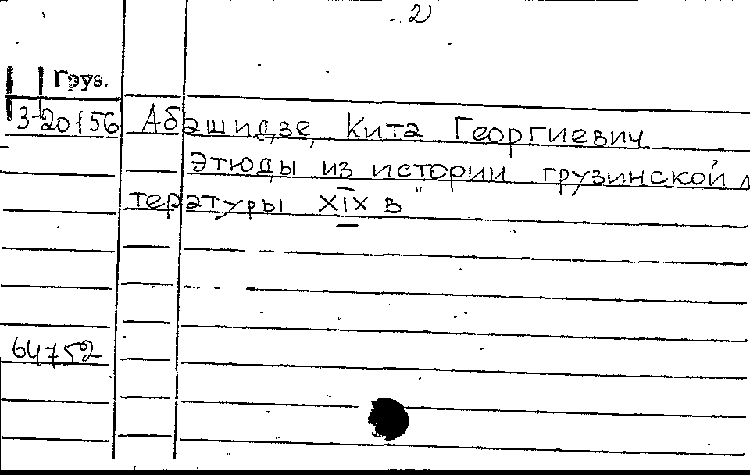 2
Груз.
3-20156 Абашидзе, Кита Георгиевич
Этюды из истории грузинской
тературы XIX в"
64752